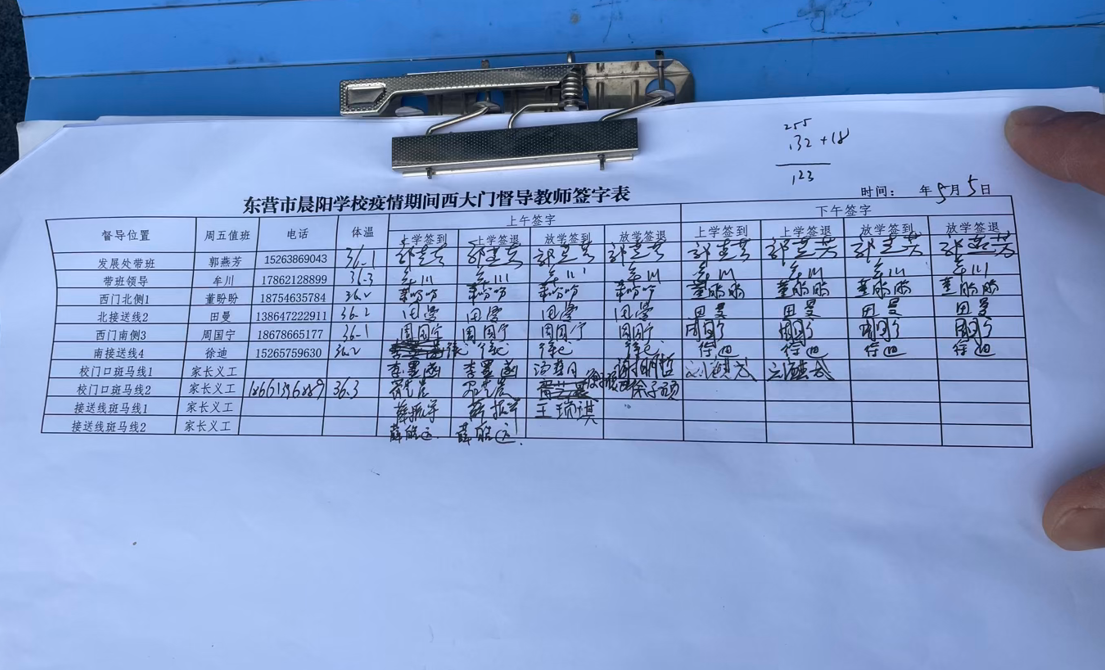 255
132+18
123
东营市晨阳学校疫情期间西大门督导教师签字表
时间： 年5月5日
督导位置 周五值班 电话 体温 上午签字 下午签字
上学签到 上学签退 放学签到 放学签退 上学签到 上学签退 放学签到 放学签退
发展处带班 郭燕芳 15263869043 36.1
带班领导 牟川 17862128899 36.3 牟川 牟川 牟川 牟川 牟川 牟川 牟川 牟川
西门北侧1 董盼盼 18754635784 36.2 董盼盼 董盼盼 董盼盼 董盼盼 董盼盼 董盼盼 董盼盼 董盼盼
北接送线2 田曼 138647222911 36.2 田曼 田曼 田曼 田曼 田曼 田曼 田曼 田曼
西门南侧3 周国宁 18678665177 36.1 周国宁 周国宁 周国宁 周国宁 周国宁 周国宁 周国宁 周国宁
南接送线4 徐迪 15265759630 36.2 徐迪 徐迪 徐迪 徐迪 徐迪 徐迪 徐迪
校门口斑马线1 家长义工
校门口斑马线2 家长义工 36.3
接送线斑马线1 家长义工 王瑞琪
接送线斑马线2 家长义工